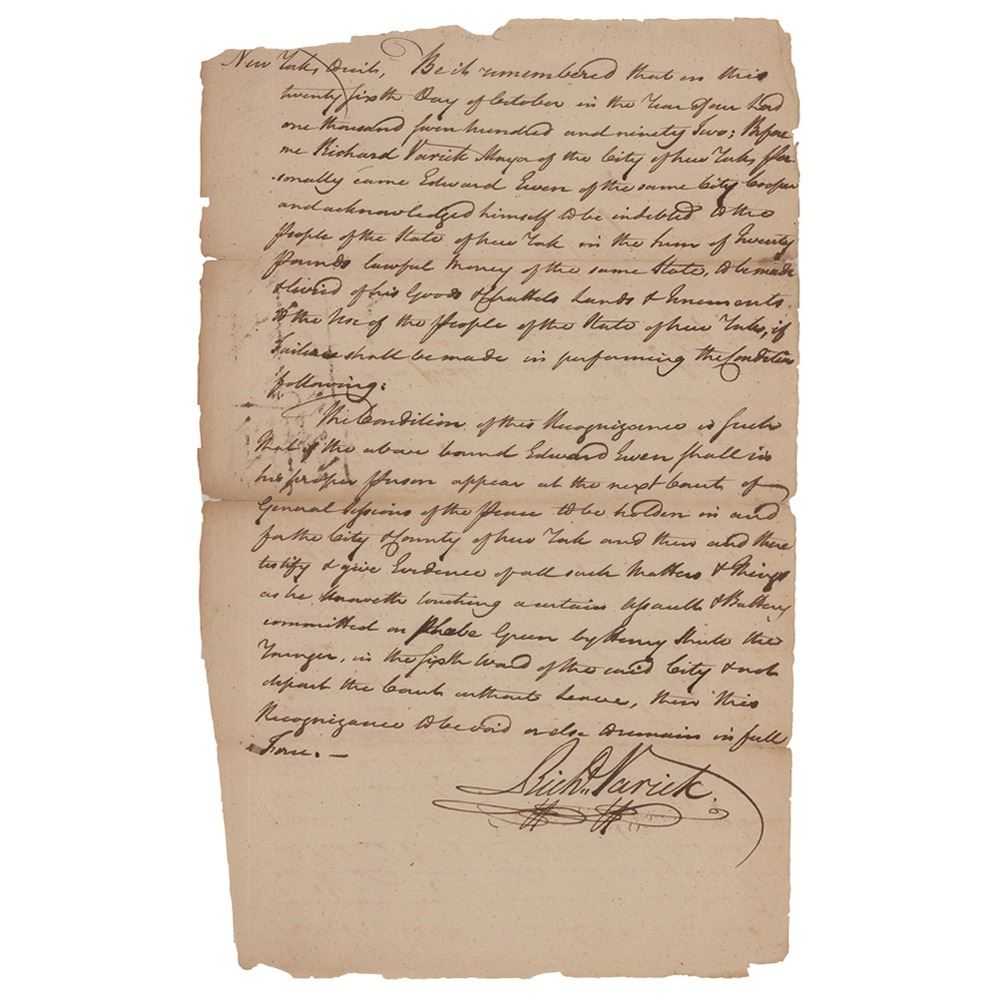 New York, Scils, Be it remembered that on this
twenty sixth Day of October in the Year of our Lord
one thousand seven hundred and ninety Two; Before
me Richard Varick Mayor of the City of New York, Per-
sonally came Edward Ewen of the same City Cooper
and acknowledged himself to be indebted to the
People of the State of New York in the sum of Twenty
Pounds lawful Money of the same State, to be made
& livied of his Goods & Chattels Lands & Tenements
to the Use of the People of the State of New York, if
Failure shall be made in performing the Condition
following:
The Condition of this Recognizance is such
that if the above bound Edward Ewen shall in
his proper Person appear at the next Court of
General Sessions of the Peace to be holden in and
for the City & County of New York and then and there
testify & give Evidence of all such Matters & Things
as he knoweth touching a certain Assault & Battery
committed on Phebe Green by Henry Shute the
Younger, in the sixth Ward of the said City & not
depart the Court without Leave, then this
Recognizance to be void or else to remain in full
Force. —
Richd. Varick.